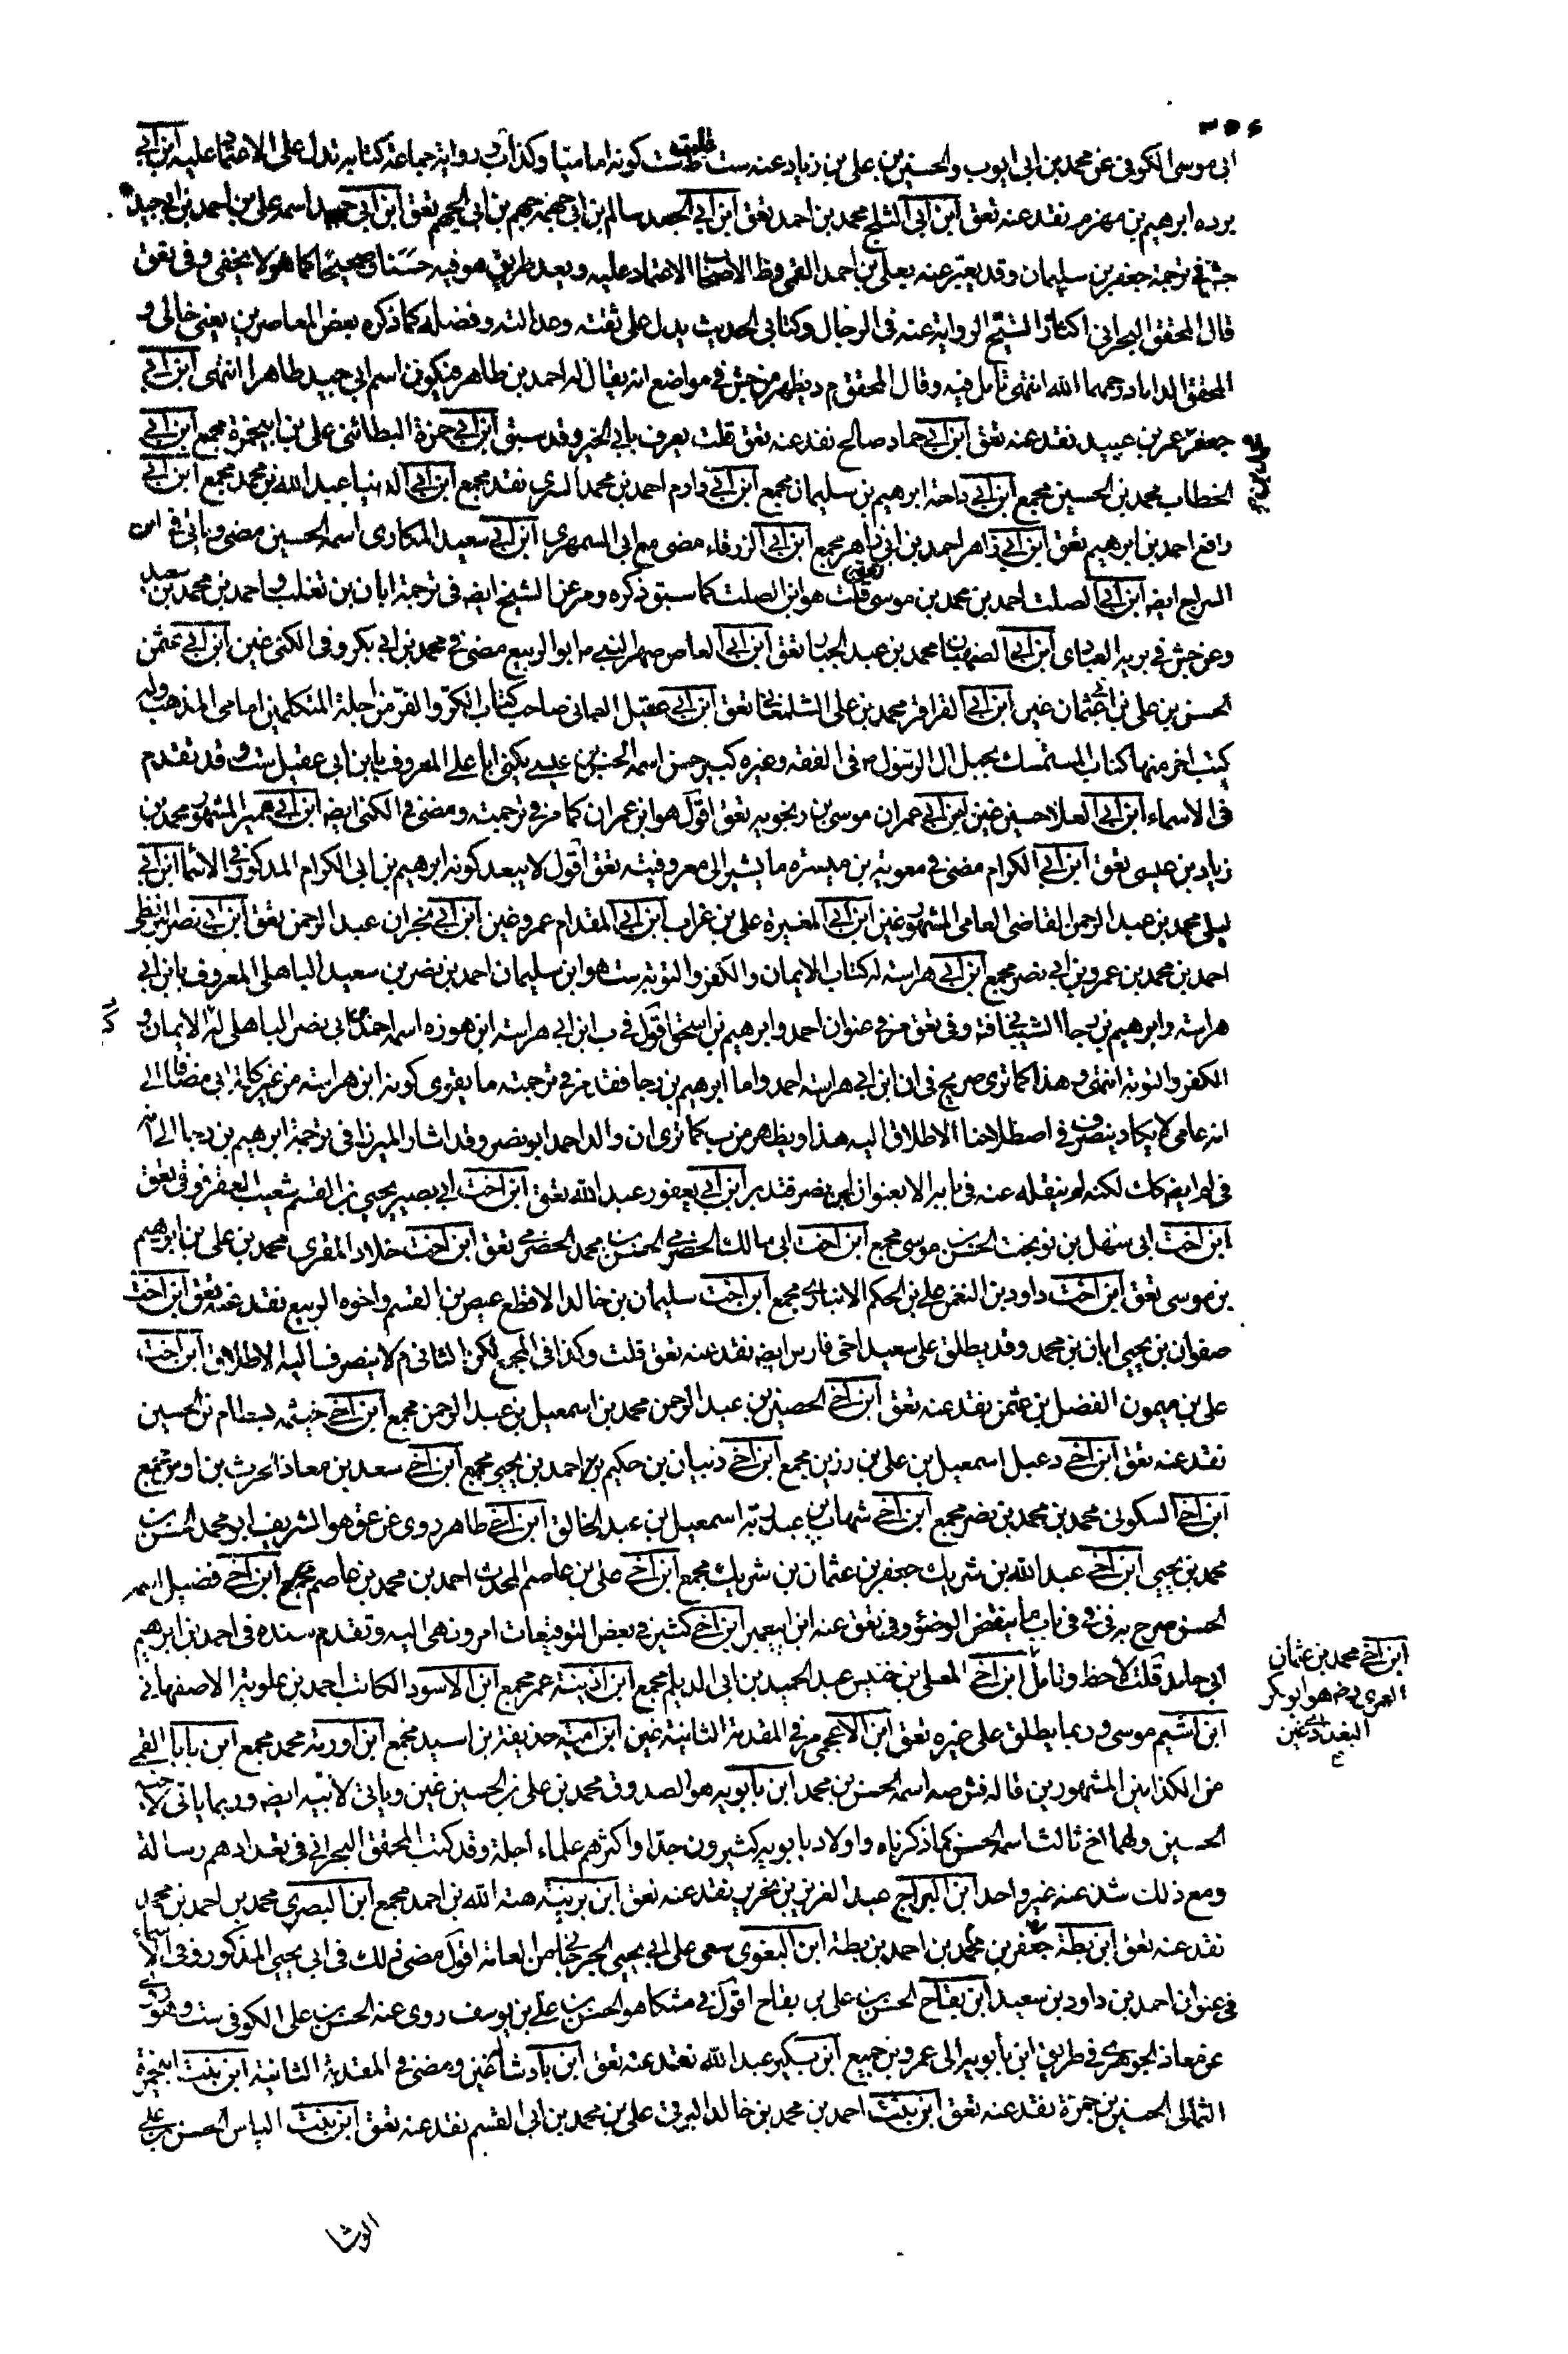 ٣٥٤
ابى موسى الكوفى عن محمد بن ابى ايوب والحسين بن على بن زياد عنه ست قلت ظ ست كونه اماميا وكذا فى رواية جماعة كتابه تدل على الاعتماد عليه ابن ابى
برده ابرهيم بن مهزم نقد عنه تعق ابن ابى الثلج محمد بن احمد تعق ابن ابى الجعد سالم بن ابى جهمة جهم بن ابى الجهم تعق ابن ابى جيد اسمه على بن احمد بن ابى جيد
جش فى ترجمة جعفر بن سليمان وقد يعبر عنه بعلى بن احمد القمى وظ الاصحاب الاعتماد عليه ويعد طريق هو فيه حسنا وصحيحا كما هو لا يخفى وفى تعق
قال المحقق البحرانى اكثار الشيخ الرواية عنه فى الرجال وكتابى الحديث يدل على ثقته وعدالته وفضله كما ذكره بعض المعاصرين يعنى خالى و
المحقق الداماد رحمهما الله انتهى تأمل فيه وقال المحقق م د يظهر من جش فى مواضع انه يقال له احمد بن طاهر فيكون اسم ابى جيد طاهرا انتهى ابن ابى
جعفر عمر بن عبيد نقد عنه تعق ابن ابى حماد صالح نقد عنه تعق قلت يعرف بابى الخير وقد سبق ابن ابى حمزة البطائنى على بن ابيحمزة مجمع ابن ابى
الخطاب محمد بن الحسين مجمع ابن ابى داحة ابرهيم بن سليمان مجمع ابن ابى دارم احمد بن محمد السرى نقد مجمع ابن ابى الدنيا عبد الله بن محمد مجمع ابن ابى
رافع احمد بن ابرهيم تعق ابن ابى زاهر احمد بن ابى زاهر مجمع ابن ابى الزرقاء مضى مع ابى السمهرى ابن ابى سعيد المكارى اسمه الحسين مضى وياتى فى ابن
السراج ايضا ابن ابى الصلت احمد بن محمد بن موسى تعق قلت هو ابن الصلت كما سبق ذكره ومر عن الشيخ ايضا فى ترجمة ابان بن تغلب واحمد بن محمد بن سعيد
وعن جش فى بريه العبادى ابن ابى الصهبان محمد بن عبد الجبار تعق ابن ابى العاص صهر النبى ص ابو الربيع مضى فى محمد بن ابى بكر وفى الكنى غين ابن ابى عثمن
الحسن بن على بن ابى عثمان غين ابن ابى العزاقر محمد بن على الشلمغانى تعق ابن ابى عقيل العمانى صاحب كتاب الكر والفر من اجلة المتكلمين امامى المذهب وله
كتب اخر منها كتاب المستمسك بحبل ال الرسول ص فى الفقه وغيره كبير حسن اسمه الحسن بن عيسى يكنى ابا على المعروف بابن ابى عقيل ست وقد تقدم
فى الاسماء ابن ابى العلا حسين غين ابن ابى عمران موسى بن رنجويه تعق اقول هو ابن عمران كما مر فى ترجمته ومضى فى الكنى ايضا ابن ابى عمير المشهور محمد بن
زياد بن عيسى تعق ابن ابى الكرام مضى فى معوية بن ميسره ما يشير الى معروفيته تعق اقول لا يبعد كونه ابرهيم بن ابى الكرام المذكور فى الاسماء ابن ابى
ليلى محمد بن عبد الرحمن القاضى العامى المشهور غين ابن ابى المغيرة على بن غراب ابن ابى المقدام عمرو غين ابن ابى نجران عبد الرحمن تعق ابن ابى نصر البزنطى
احمد بن محمد بن عمرو بن ابى نصر مجمع ابن ابى هراسه له كتاب الايمان والكفر والتوبة ست هو ابن سليمان احمد بن نصر بن سعيد الباهلى المعروف بابن ابى
هراسة وابرهيم بن رجا الشيبانى ثقة وفى تعق مر فى عنوان احمد وابرهيم بن اسحق اقول فى ب ابن ابى هراسة ابن هوزه اسمه احمد بن ابى نضر الباهلى له الايمان و
الكفر والتوبة انتهى وهذا كما ترى صريح فى ان ابن ابى هراسة احمد واما ابرهيم بن رجا فقد مر فى ترجمته ما يقوى كونه ابن هراسة من غير كلمة ابى مضافا الى
انه عامى لا يكاد ينصرف فى اصطلاحنا الاطلاق اليه هذا ويظهر من ب كما ترى ان والد احمد ابو نصر وقد اشار الميرزا فى ترجمة ابرهيم بن رجا الى انه
فى لم ايضا كك لكنه لم ينقله عنه فى بابه الا بعنوان ابن نصر فتدبر ابن ابى يعفور عبد الله تعق ابن اخت ابى بصير يحيى بن القسم شعيب العقرقوفى تعق
ابن اخت ابى سهل بن نوبخت الحسن بن موسى مجمع ابن اخت ابى مالك الحضرمى الحسن بن محمد الحضرمى تعق ابن اخت خلاد المقرى محمد بن على بن ابرهيم
بن موسى تعق ابن اخت داود بن النعمن على بن الحكم الانبارى مجمع ابن اخت سليمان بن خالد الاقطع عيص بن القسم واخوه الربيع نقد عنه تعق ابن اخت
صفوان بن يحيى ابان بن محمد وقد يطلق على سعيد اخى فارس ايضا نقد عنه تعق قلت وكذا فى المجمع لكن الثانى م لا ينصرف اليه الاطلاق ابن اخت
على بن ميمون الفضل بن عثمن نقد عنه تعق ابن اخى الحصين بن عبد الرحمن محمد بن اسمعيل بن عبد الرحمن مجمع ابن اخى خيثمه بسطام بن الحسين
نقد عنه تعق ابن اخى دعبل اسمعيل بن على بن رزين مجمع ابن اخى ذبيان بن حكيم احمد بن يحيى مجمع ابن اخى سعد بن معاذ الحرث بن اوس مجمع
ابن اخى السكونى محمد بن محمد بن نصر مجمع ابن اخى شهاب بن عبد ربه اسمعيل بن عبد الخالق ابن اخى طاهر روى عن عق هو الشريف ابو محمد الحسن بن
محمد بن يحيى ابن اخى عبد الله بن شريك جعفر بن عثمان بن شريك مجمع ابن اخى على بن عاصم المحدث احمد بن محمد بن عاصم مجمع ابن اخى فضيل اسمه
الحسن صرح به فى فى فى باب ما ينقض الوضوء وفى تعق عنه ابن ابيعمير ابن اخى كثير فى بعض التوقيعات امر ونهى اليه وتقدم سنده فى احمد بن ابرهيم
ابى حامد قلت لاحظ وتامل ابن اخى المعلى بن خنيس عبد الحميد بن ابى الديلم مجمع ابن اذينة عمر مجمع ابن الاسود الكاتب احمد بن علويه الاصفهانى
ابن اشيم موسى وربما يطلق على غيره تعق ابن الاعجمى مر فى المقدمة الثانية غين ابن امية حذيفة بن اسيد مجمع ابن اورمة محمد مجمع ابن بابا القمى
من الكذابين المشهورين قاله فش صه اسمه الحسن بن محمد ابن بابويه هو الصدوق محمد بن على بن الحسين غين وياتى لابيه ايضا وربما ياتى لاخيه
الحسين ولهما اخ ثالث اسمه الحسن كما ذكرناه واولاد بابويه كثيرون جدا واكثرهم علماء اجلة وقد كتب المحقق البحرانى فى تعدادهم رسالة
ومع ذلك شذ عنه غير واحد ابن البراج عبد العزيز بن نحرير نقد عنه تعق ابن برنية هبة الله بن احمد مجمع ابن البصرى محمد بن احمد بن محمد
نقد عنه تعق ابن بطة جعفر بن محمد بن احمد بن بطة ابن البغوى سعى على ابى يحيى الجرجانى من العامة اقول مضى ذلك فى ابى يحيى المذكور وفى الاسماء
فى عنوان احمد بن داود بن سعيد ابن بقاح الحسن بن على بن بقاح اقول فى مشكا هو الحسن بن على بن يوسف روى عنه الحسن بن على الكوفى ست وهو روى
عن معاذ الجوهرى فى طريق ابن بابويه الى عمرو بن جميع ابن بكير عبد الله نقد عنه تعق ابن بادشاه غين ومضى فى المقدمة الثانية ابن بنت ابيحمزة
الثمالى الحسين بن حمزة نقد عنه تعق ابن بنت احمد بن محمد بن خالد البرقى على بن محمد بن ابى القسم نقد عنه تعق ابن بنت الياس الحسن بن على
ابن اخى محمد بن عثمان
العمرى رض هو ابو بكر
البغدادى غين
ع
الوشا